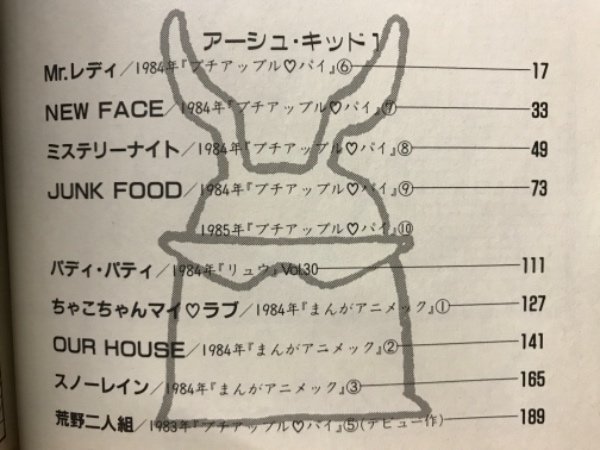 アーシュ・キッド1
Mr.レディ／1984年『プチアップル♡パイ』⑥ 17
NEW FACE／1984年『プチアップル♡パイ』⑦ 33
ミステリーナイト／1984年『プチアップル♡パイ』⑧ 49
JUNK FOOD／1984年『プチアップル♡パイ』⑨ 73
1985年『プチアップル♡パイ』⑩
バディ・パティ／1984年『リュウ』Vol.30 111
ちゃこちゃんマイ♡ラブ／1984年『まんがアニメック』① 127
OUR HOUSE／1984年『まんがアニメック』② 141
スノーレイン／1984年『まんがアニメック』③ 165
荒野二人組／1983年『プチアップル♡パイ』⑤(デビュー作) 189